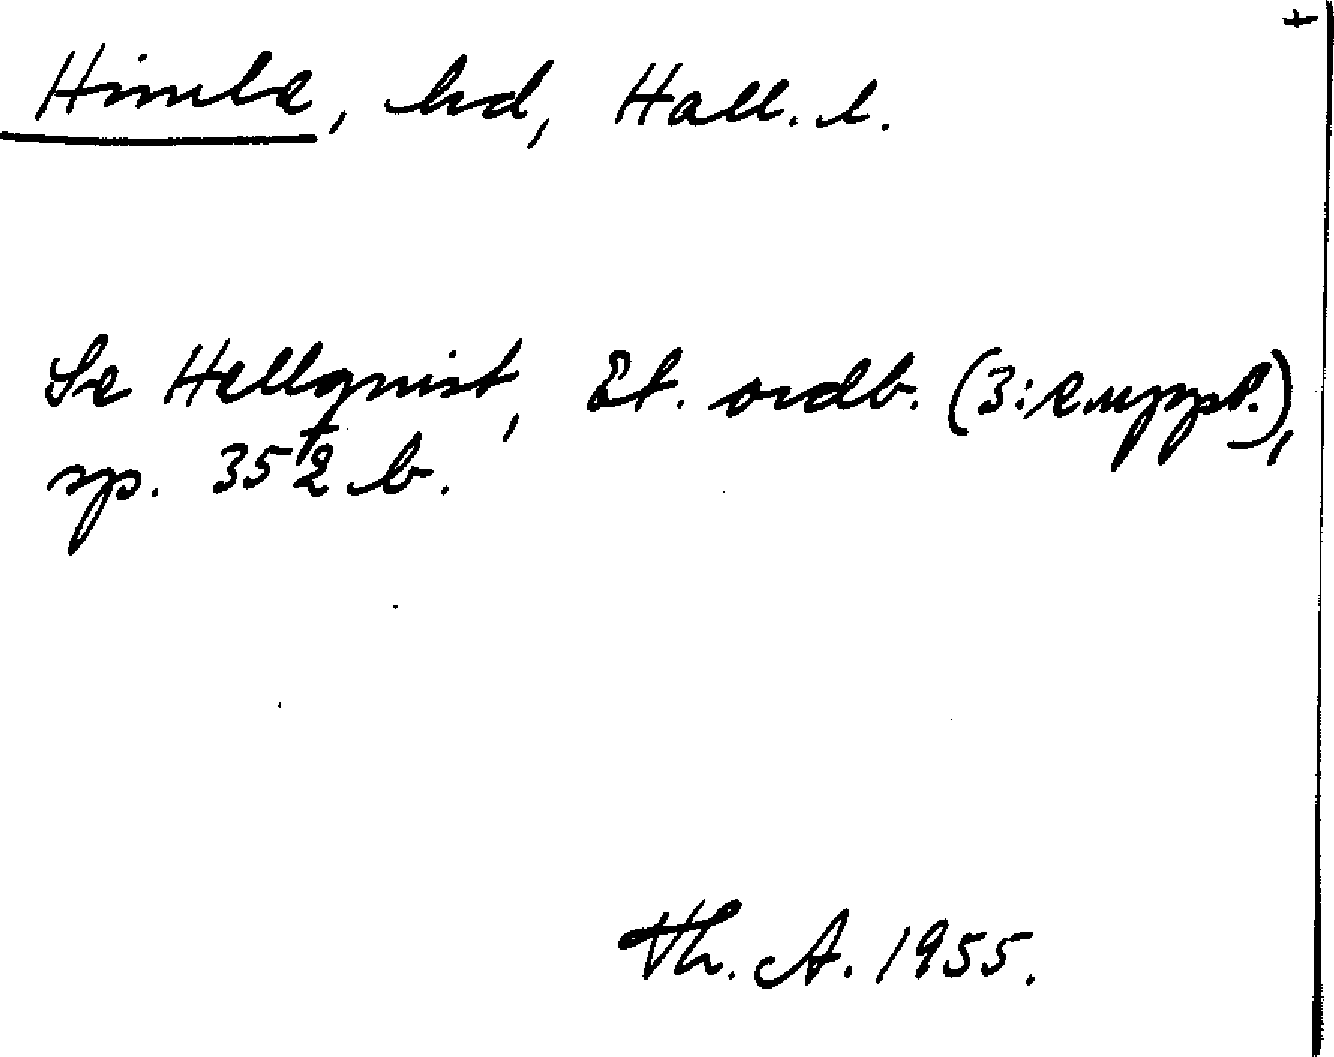 +
Himle, hd, Hall. l.
Se Hellquist, Et. ordb. (3:e uppl.),
sp. 352 b.
Th. A. 1955.